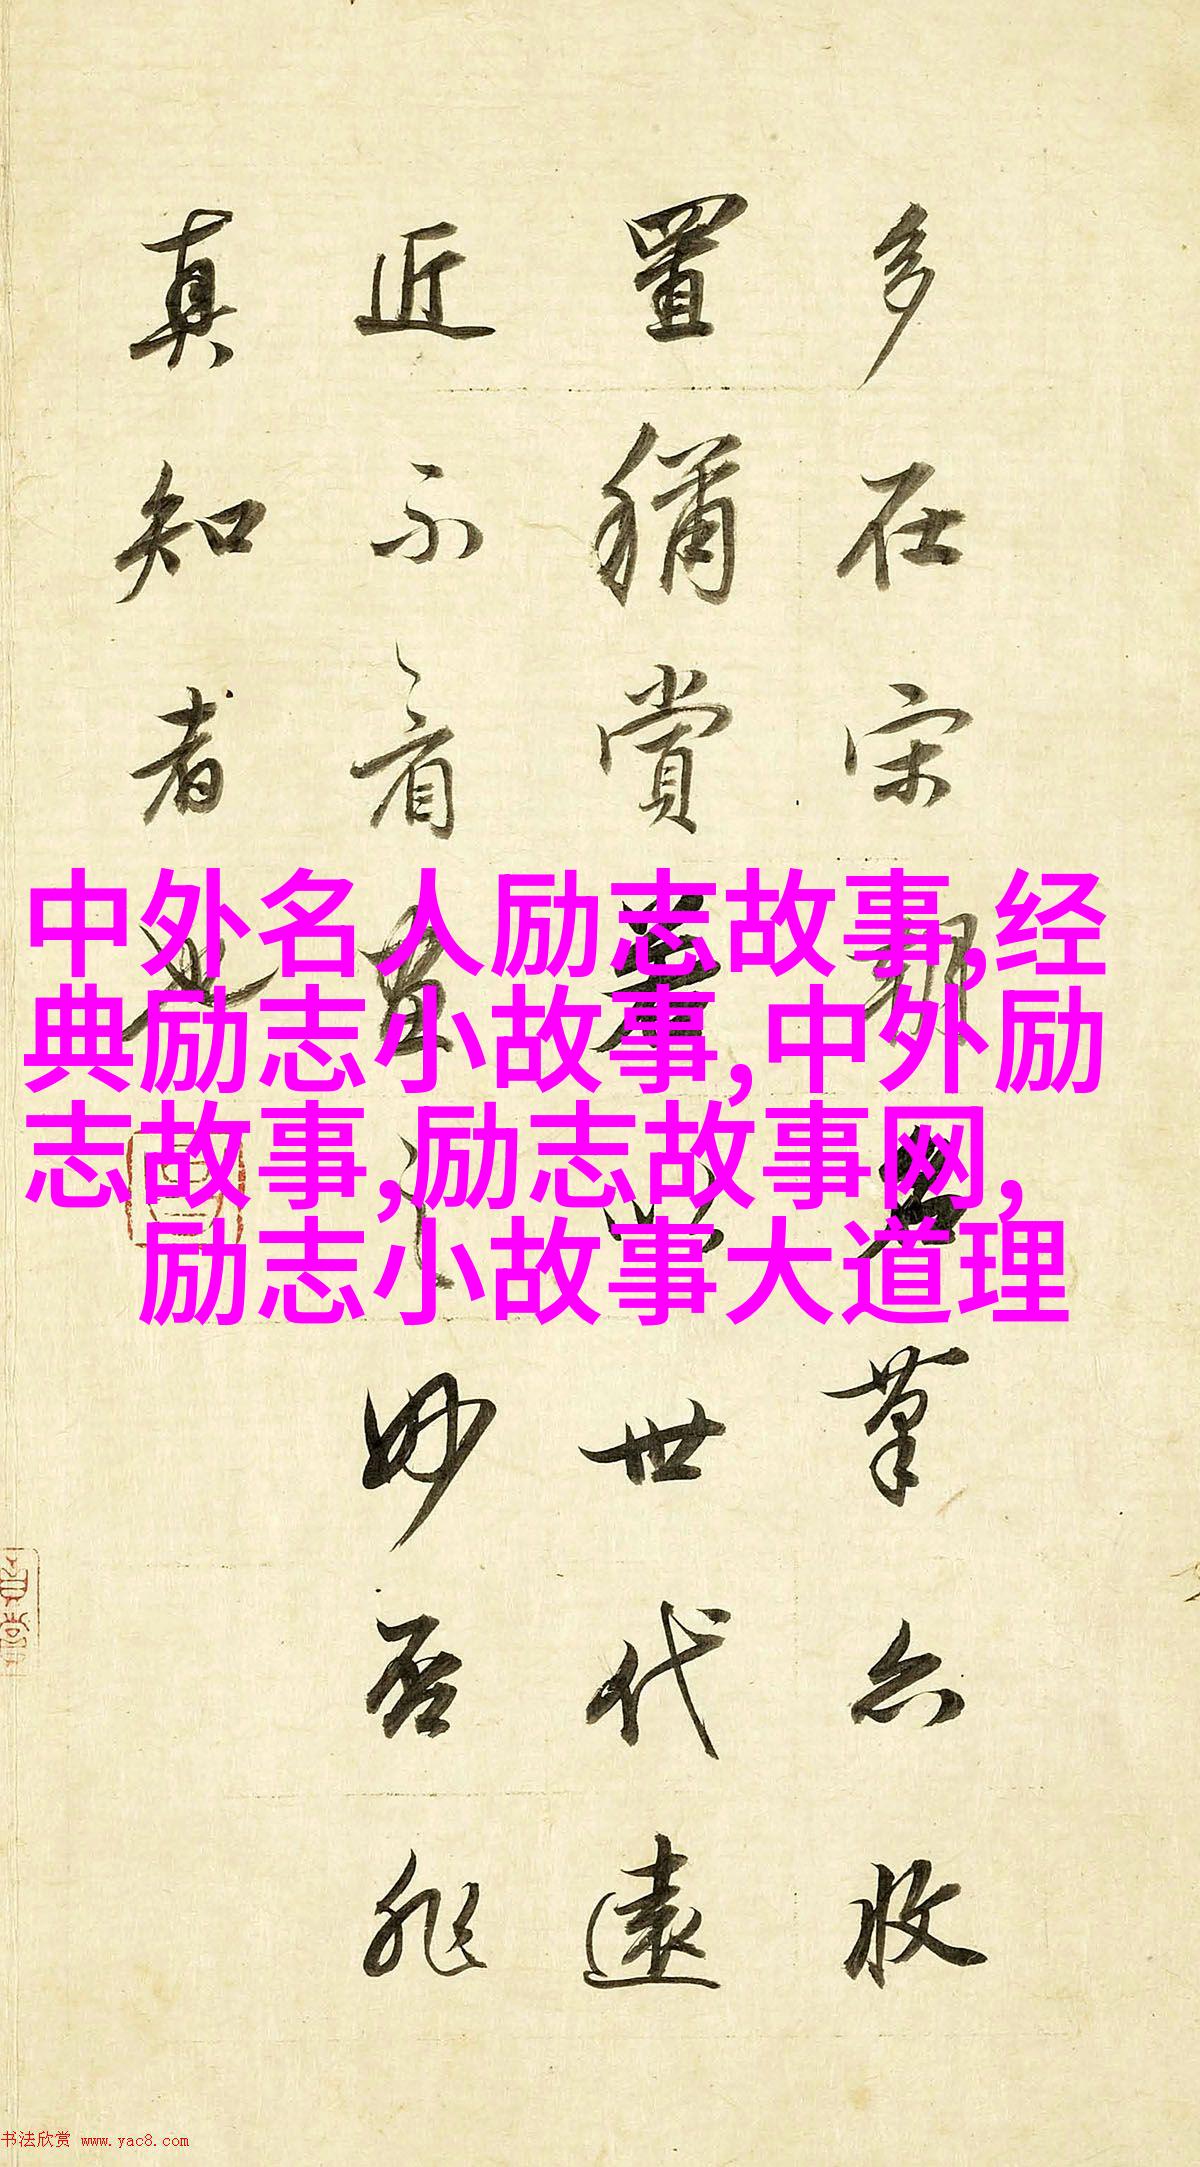 多在宋朝名筆亦收
置稱賞若以世代遠
近不看畫之妙否非
真知者也
中外名人励志故事,经
典励志小故事,中外励
志故事,励志故事网,
励志小故事大道理
书法欣赏 www.yac8.com